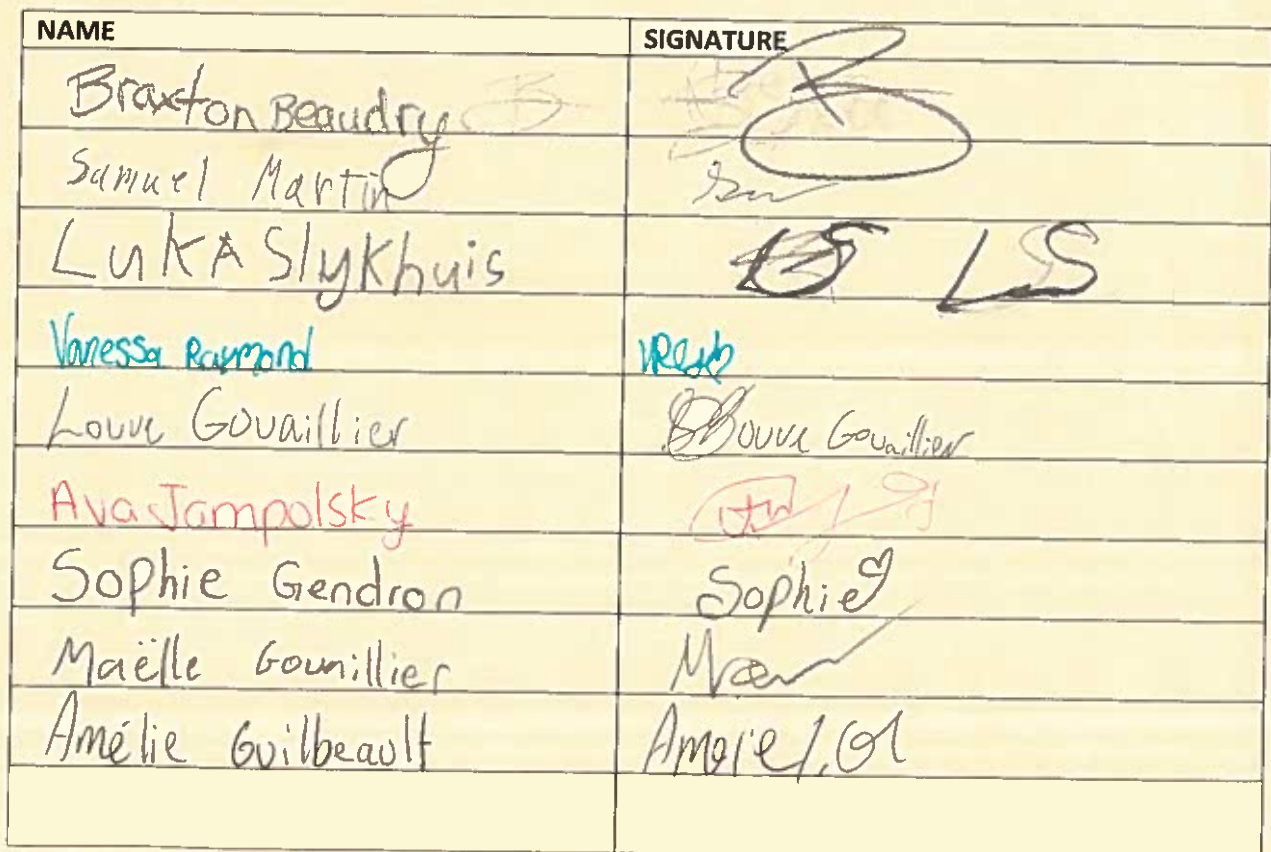 NAME SIGNATURE
Braxton Beaudry B
Samuel Martin
LuKA Slykhuis LS LS
Vanessa Raymond
Louve Govaillier Louve Govaillier
Ava Jampolsky
Sophie Gendron Sophie
Maëlle Gouaillier
Amélie Guilbeault